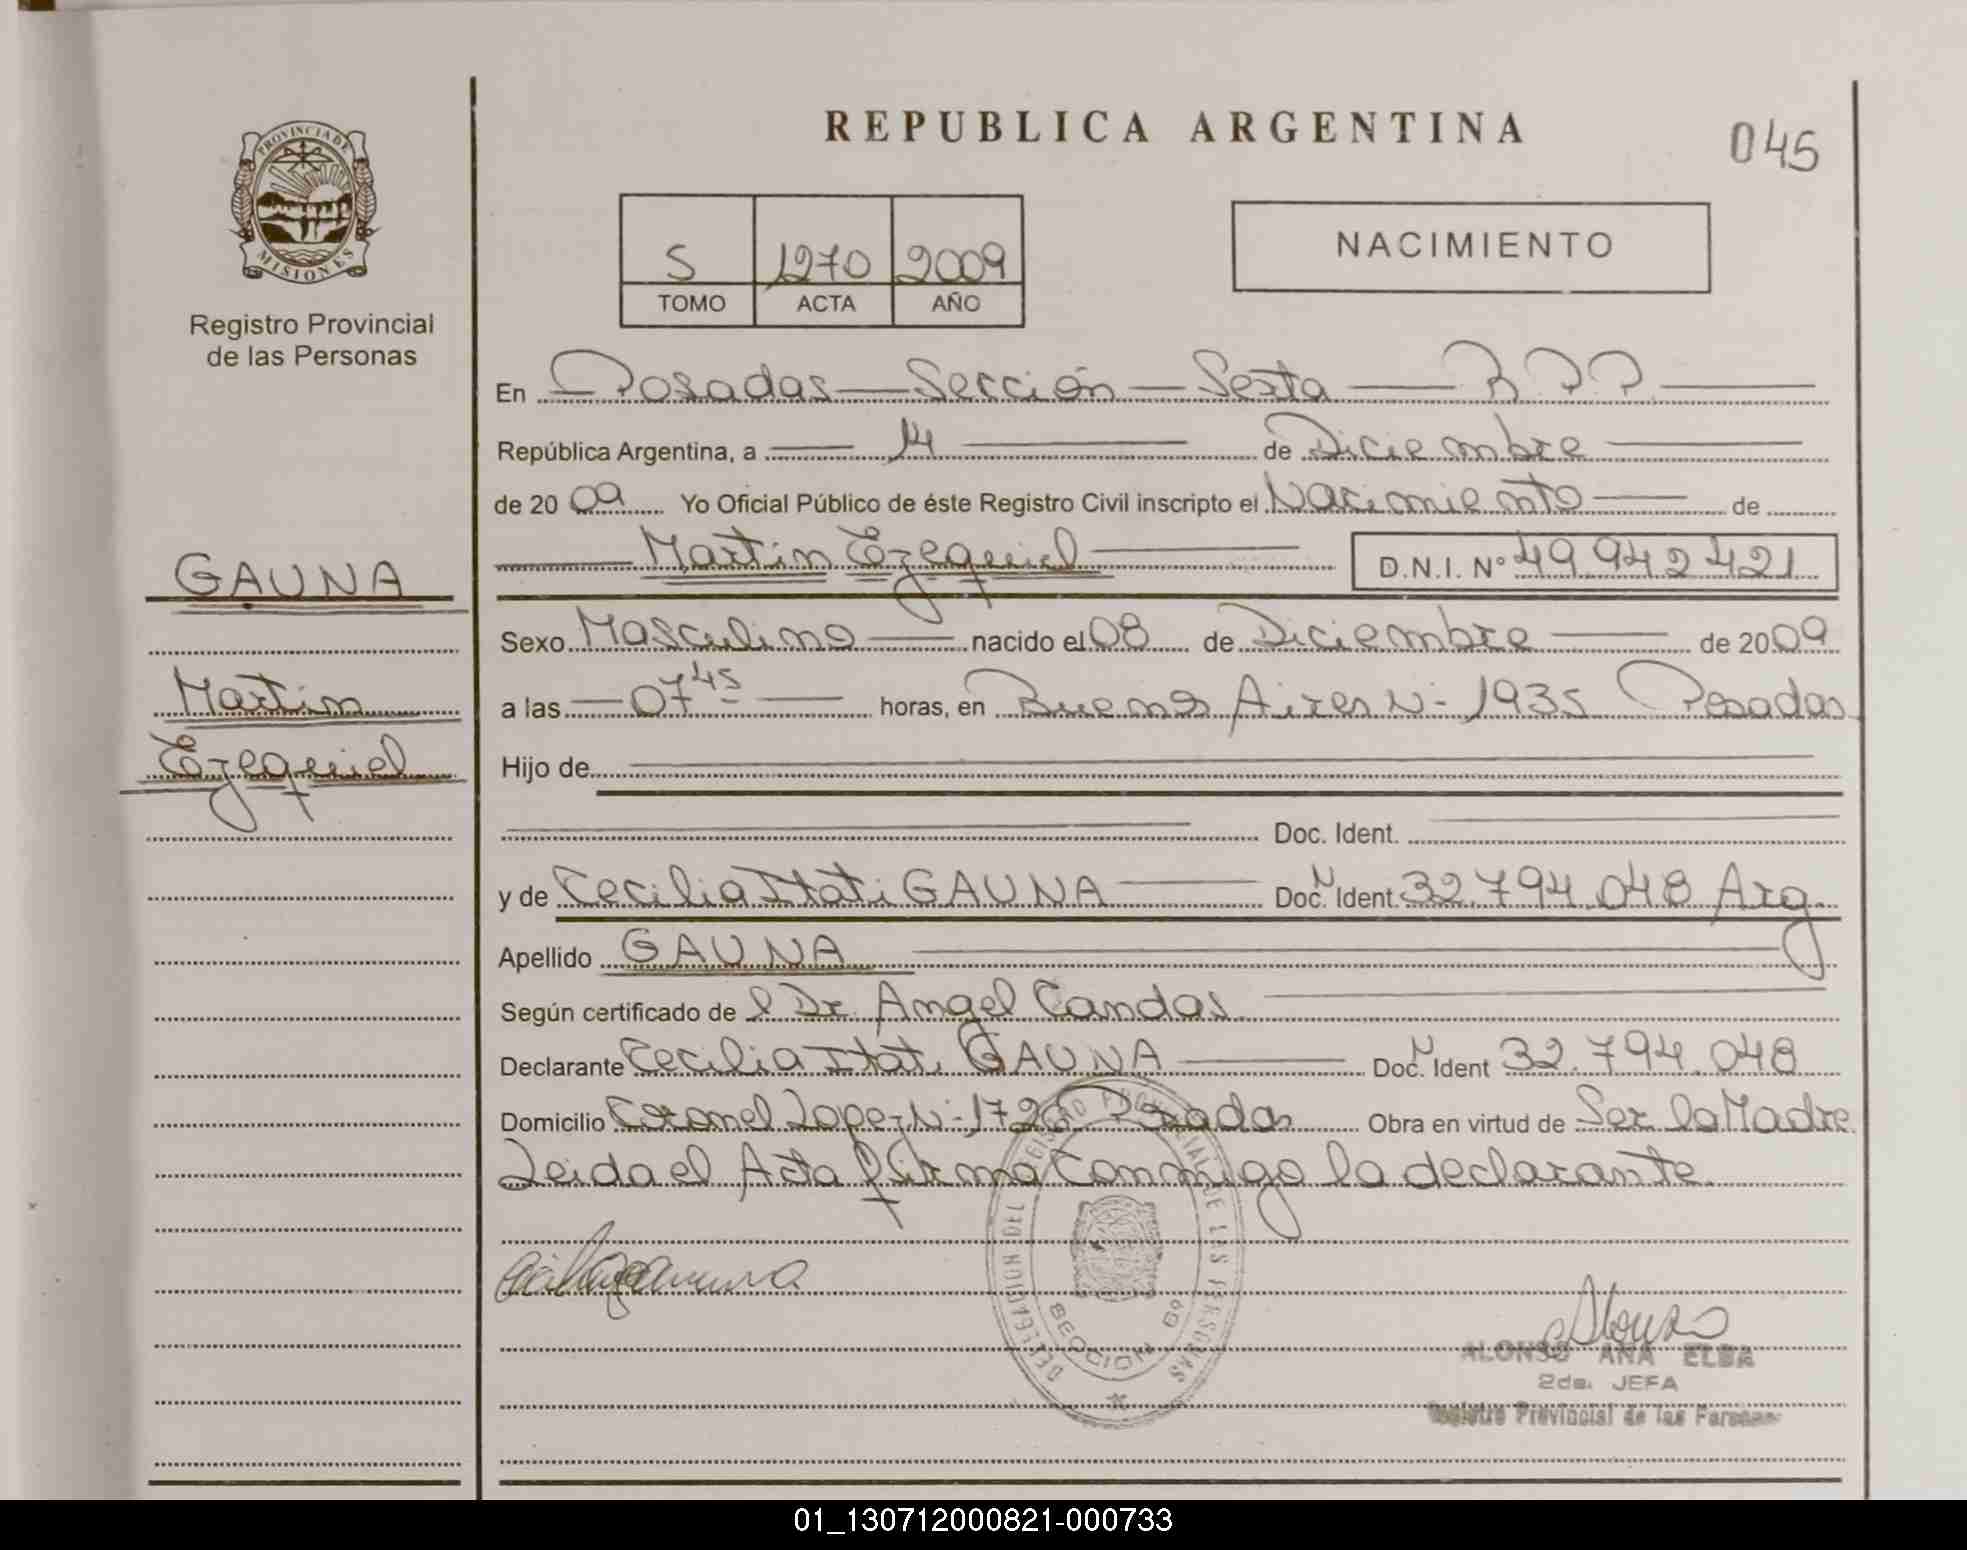 REPUBLICA ARGENTINA
045
PROVINCIA DE
MISIONES
Registro Provincial
de las Personas
S 1270 2009
TOMO ACTA AÑO
NACIMIENTO
En Posadas Sección Sexta R.P.P.
República Argentina, a 14 de Diciembre
de 20 09 Yo Oficial Público de éste Registro Civil inscripto el Nacimiento de
Martin Ezequiel D.N.I. N° 49.942.421
GAUNA
Martin
Ezequiel
Sexo Masculino nacido el 08 de Diciembre de 2009
a las 07 45 horas, en Buenos Aires N- 1935 Posadas
Hijo de
Doc. Ident.
y de Cecilia Itati GAUNA Doc. Ident. 32.794.048 Arg.
Apellido GAUNA
Según certificado de l Dr. Angel Candas
Declarante Cecilia Itati GAUNA Doc. Ident 32.794.048
Domicilio Coronel Lopez N-1726 Posadas Obra en virtud de Ser la Madre.
Leida el Acta firma Conmigo la declarante.
DELEGACION DEL REGISTRO PROVINCIAL DE LAS PERSONAS
SECCION 6º
Alonso
ALONSO ANA ELBA
2da. JEFA
Registro Provincial de las Personas
01_130712000821-000733